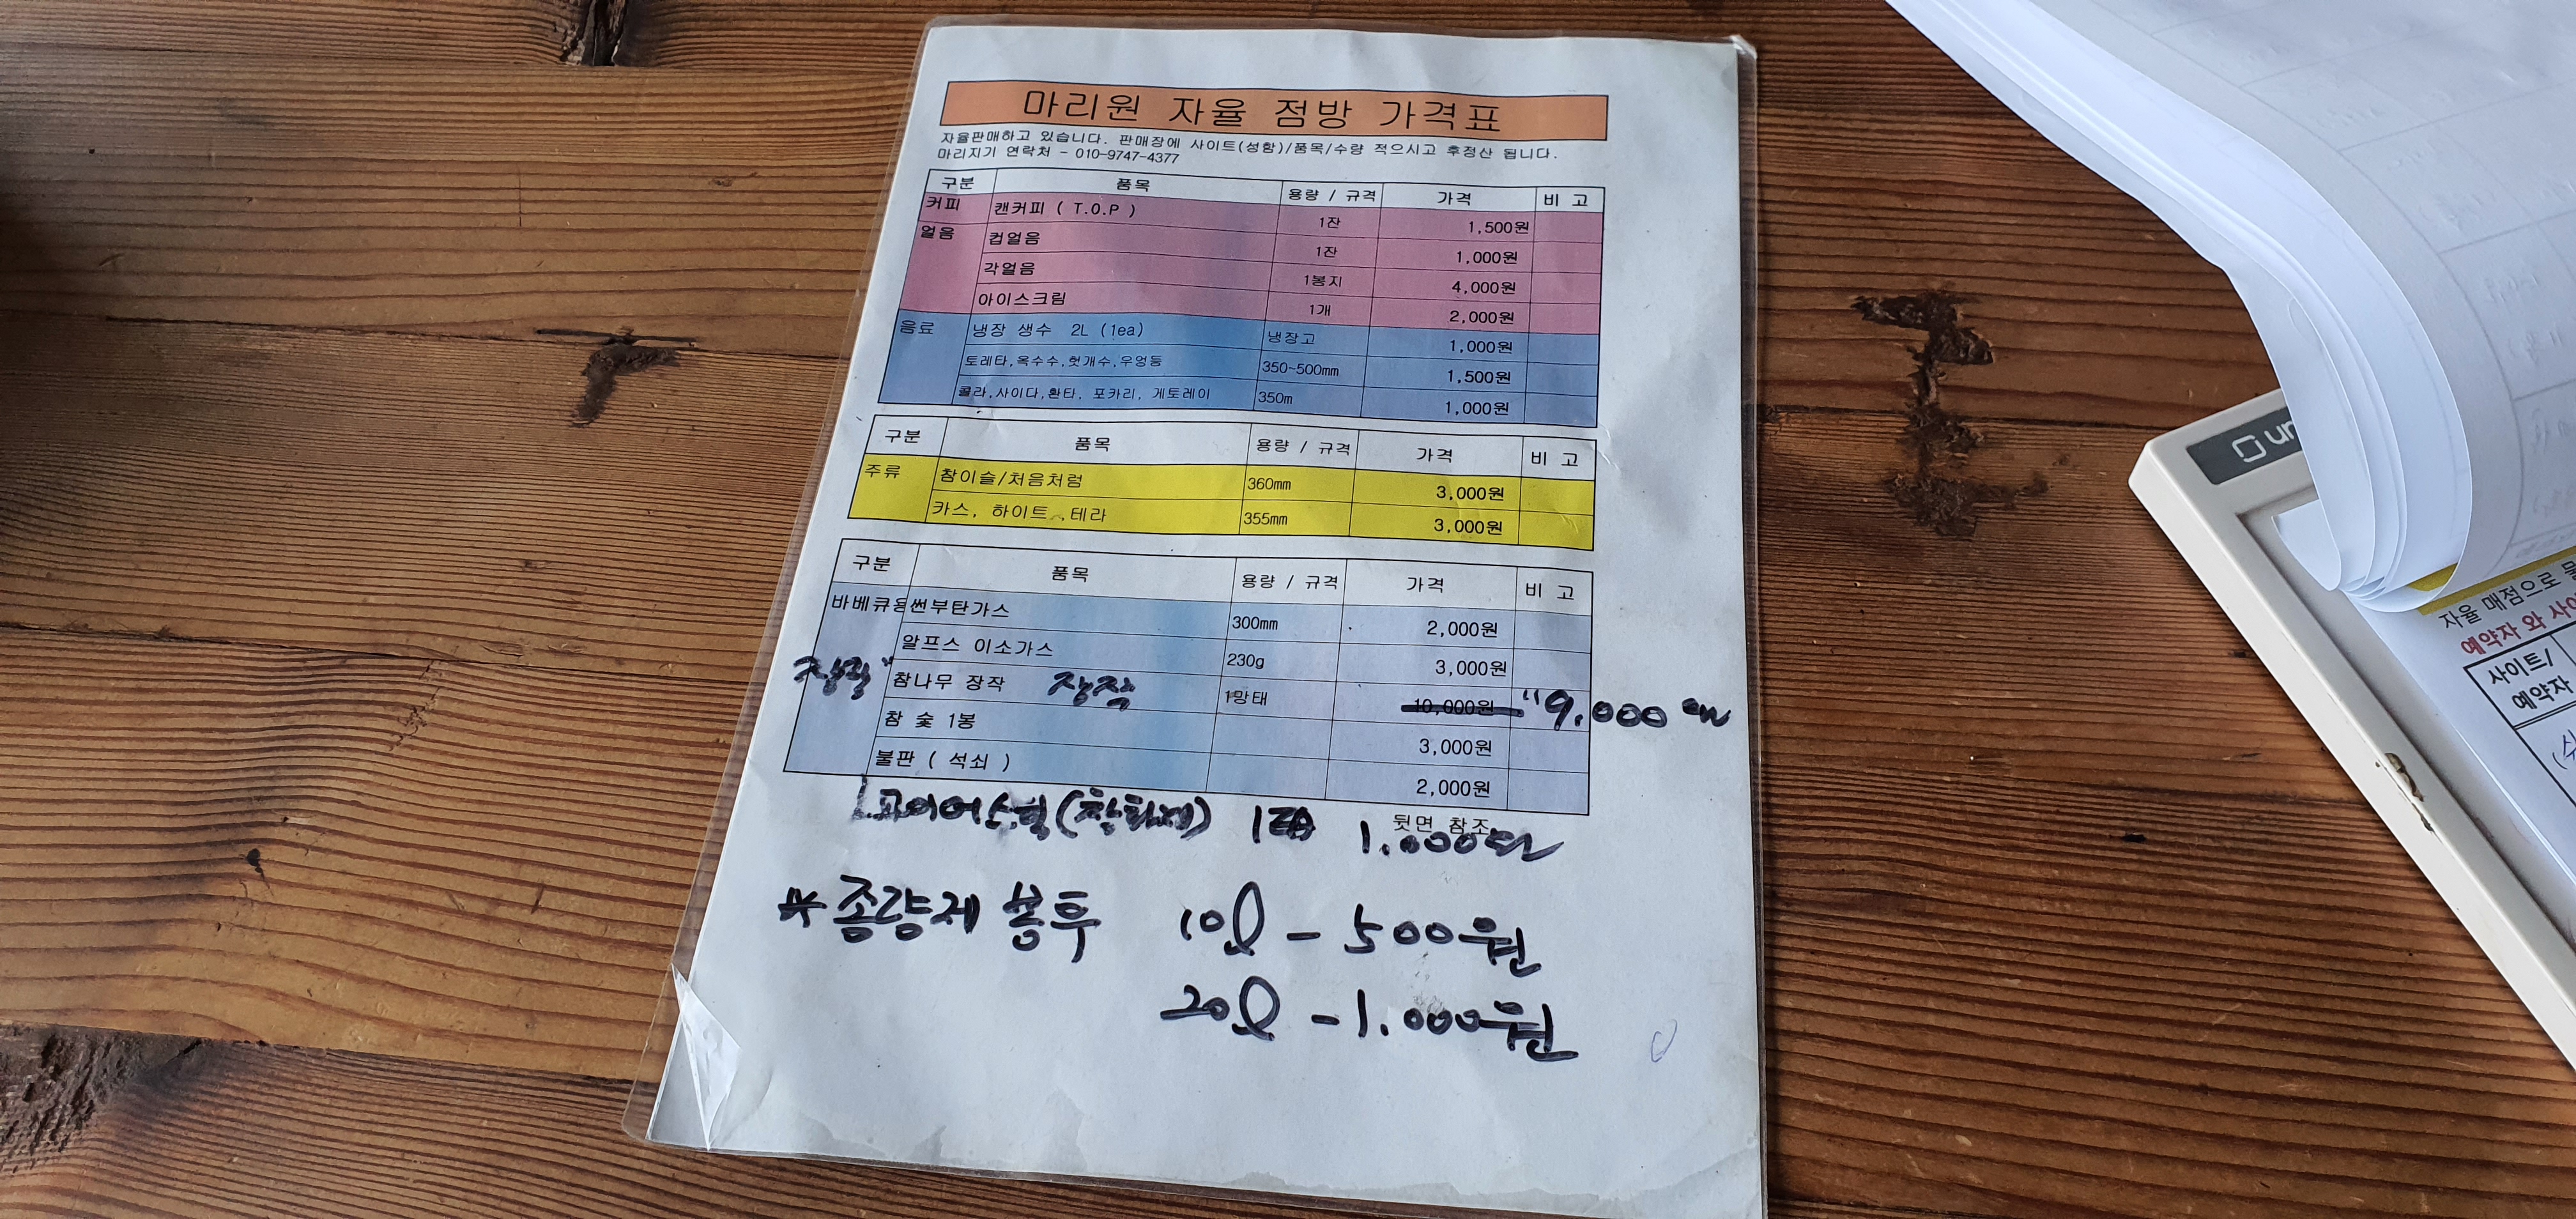 마리원 자율 점방 가격표
자율판매하고 있습니다. 판매장에 사이트(성함)/품목/수량 적으시고 후정산 됩니다.
마리지기 연락처 - 010-9747-4377
구분 품목 용량 / 규격 가격 비 고
커피 캔커피 ( T.O.P ) 1잔 1,500원
얼음 컵얼음 1잔 1,000원
각얼음 1봉지 4,000원
아이스크림 1개 2,000원
음료 냉장 생수 2L (1ea) 냉장고 1,000원
토레타,옥수수,헛개수,우엉등 350~500mm 1,500원
콜라,사이다,환타, 포카리, 게토레이 350m 1,000원
구분 품목 용량 / 규격 가격 비 고
주류 참이슬/처음처럼 360mm 3,000원
카스, 하이트 ,테라 355mm 3,000원
구분 품목 용량 / 규격 가격 비 고
바베큐용 썬부탄가스 300mm 2,000원
알프스 이소가스 230g 3,000원
장작" 참나무 장작 장작 1망태 10,000원 "9.000원
참 숯 1봉 3,000원
불판 ( 석쇠 ) 2,000원
뒷면 참조
(착화제) 1.000원
* 종량제 봉투 10ℓ - 500원
20ℓ - 1.000원
자율 매점으로
예약자 와
사이트/
예약자